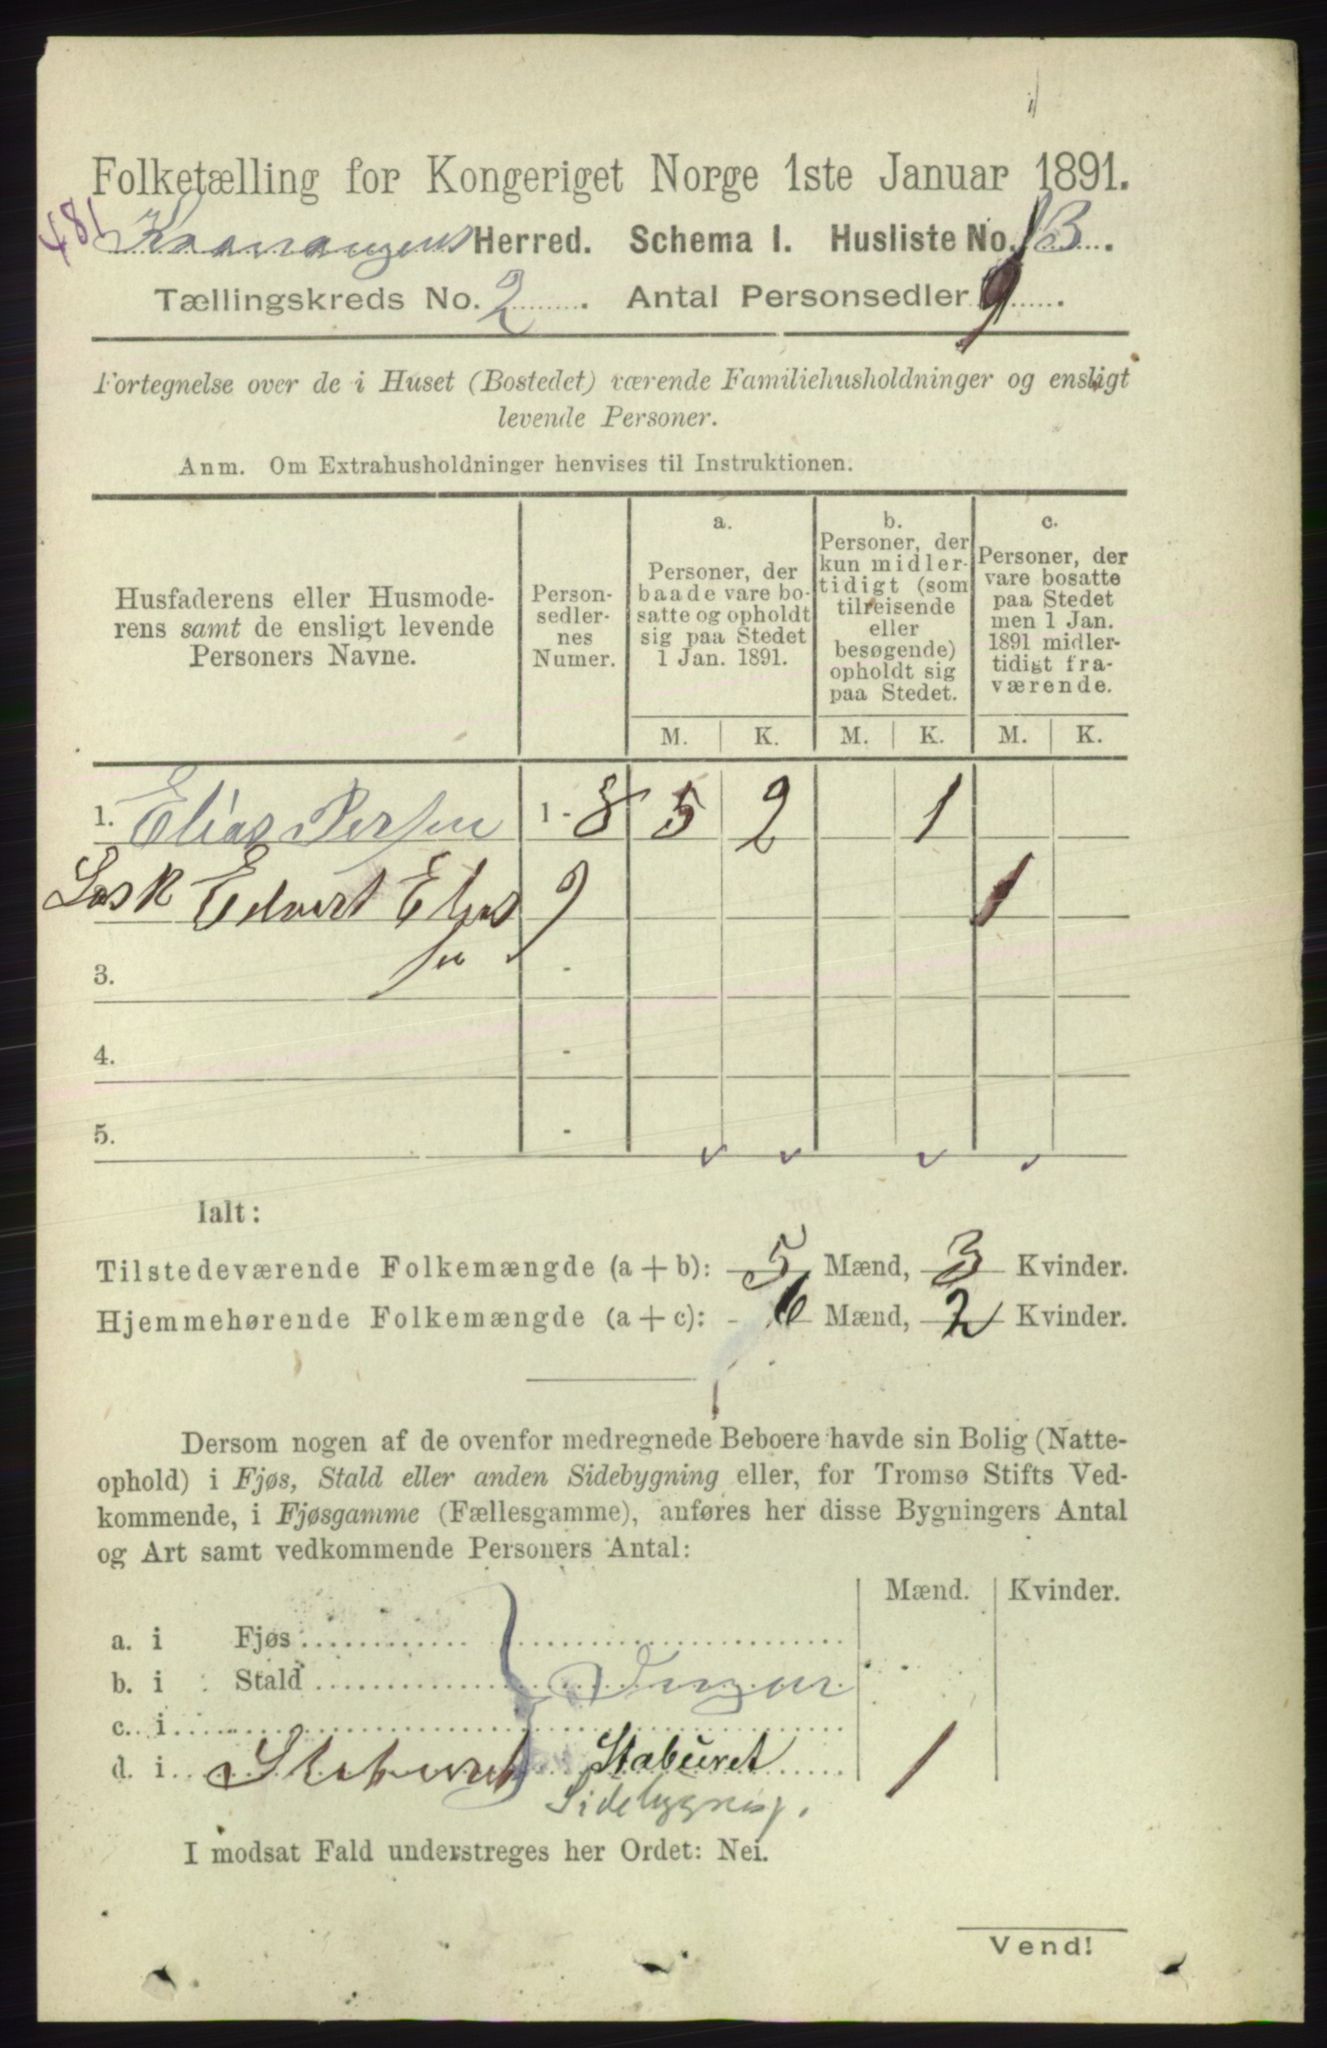 Folketælling for Kongeriget Norge 1ste Januar 1891.
481 Herred. Schema I. Husliste No. 13.
Tællingskreds No. 2. Antal Personsedler 9.
Fortegnelse over de i Huset (Bostedet) værende Familiehusholdninger og ensligt
levende Personer.
Anm. Om Extrahusholdninger henvises til Instruktionen.
Husfaderens eller Husmode-
rens samt de ensligt levende
Personers Navne.
Person-
sedler-
nes
Numer.
a.
Personer, der
baade vare bo-
satte og opholdt
sig paa Stedet
1 Jan. 1891.
b.
Personer, der
kun midler-
tidigt (som
tilreisende
eller
besøgende)
opholdt sig
paa Stedet.
c.
Personer, der
vare bosatte
paa Stedet
men 1 Jan.
1891 midler-
tidigt fra-
værende.
M. K. M. K. M. K.
1. Elias Persen 1 - 8 5 2 1
Edvert Elias 9 1
sen
3. -
4. -
5. -
Ialt:
Tilstedeværende Folkemængde (a + b): 5 Mænd, 3 Kvinder.
Hjemmehørende Folkemængde (a + c): 6 Mænd, 2 Kvinder.
Dersom nogen af de ovenfor medregnede Beboere havde sin Bolig (Natte-
ophold) i Fjøs, Stald eller anden Sidebygning eller, for Tromsø Stifts Ved-
kommende, i Fjøsgamme (Fællesgamme), anføres her disse Bygningers Antal
og Art samt vedkommende Personers Antal:
Mænd. Kvinder.
a. i Fjøs
b. i Stald Ingen
c. i
d. i Staburet Staburet 1
Sidebygning.
I modsat Fald understreges her Ordet: Nei.
Vend!